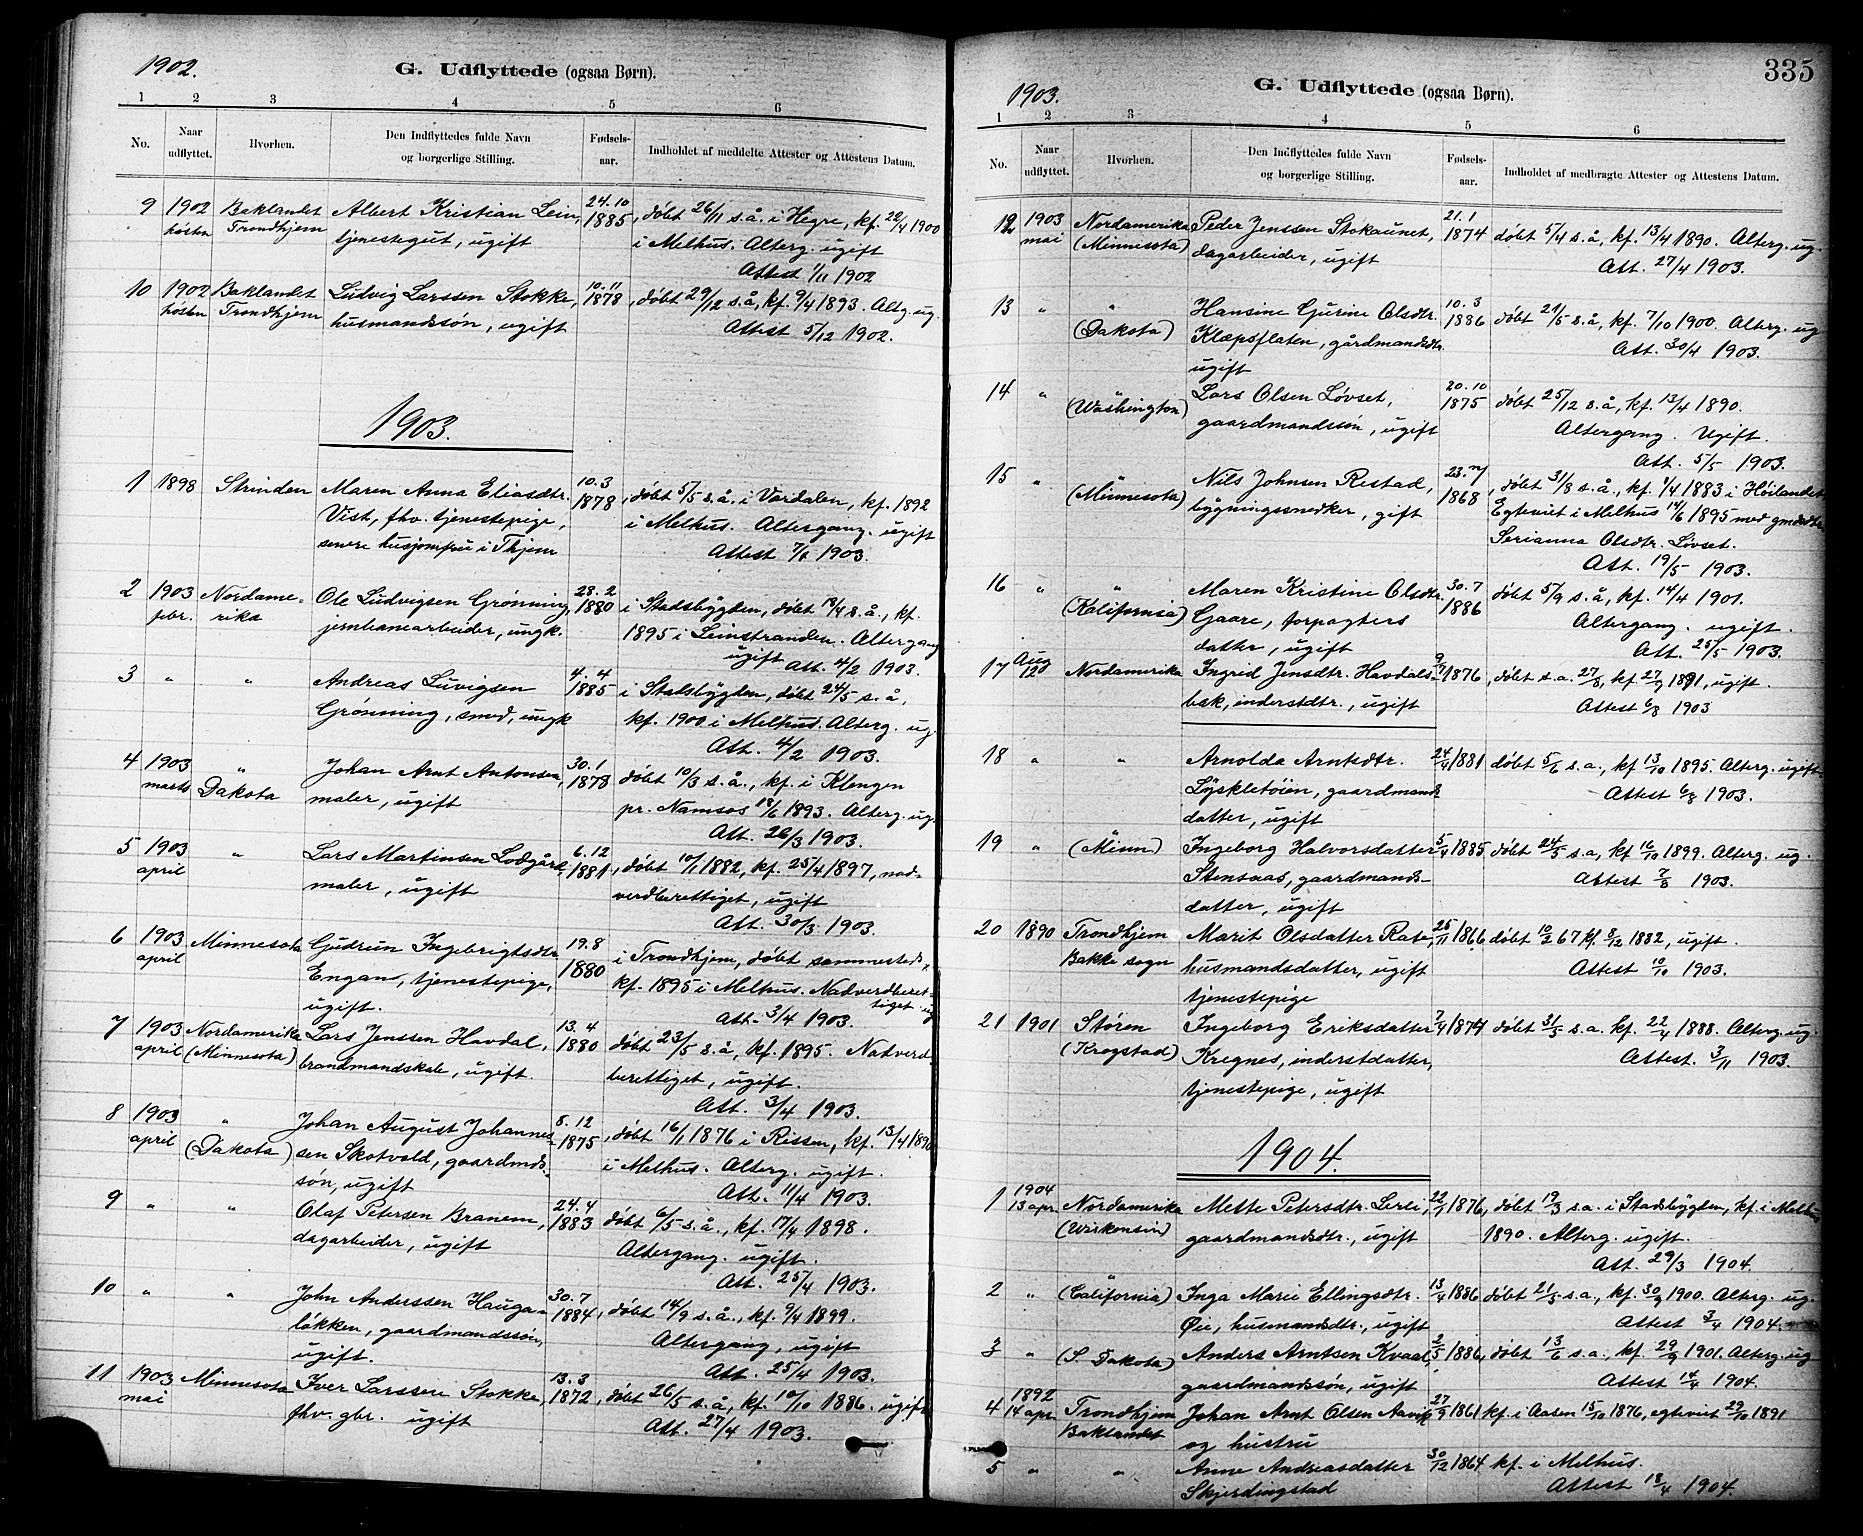 1902.
G. Udflyttede (ogsaa Børn).
1 2 3 4 5 6
No.
Naar
udflyttet.
Hvorhen.
Den Indflyttedes fulde Navn
og borgerlige Stilling.
Fødsels-
aar.
Indholdet af meddelte Attester og Attestens Datum.
9 1902 Baklandet Albert Kristian Lein, 24.10 1885, døbt 26/11 s.å. i Hegre, kf. 22/4 1900
høsten Trondhjem tjenestegut, ugift i Melhus. Alterg. ugift
Attest 1/11 1902
10 1902 Baklandet Ludvig Larssen Stokke, 10.11 1878, døbt 29/12 s.å, kf. 9/4 1893. Altg. ug.
høsten Trondhjem husmandssøn, ugift Attest 5/12 1902.
1903.
1 1898 Strinden Maren Anna Eliasdtr. 10.3 1878, døbt 5/5 s.å. i Værdalen, kf. 1892
Vist, fhv. tjenestepige, i Melhus. Altergang. ugift
senere husjomfru i Thjem Attest 7/1 1903.
2 1903 Nordame- Ole Ludvigsen Grønning, 28.2 1880 i Stadsbygden, døbt 18/4 s.å., kf.
febr. rika jernbanearbeider, ungk. 1895 i Leinstranden. Altergang
ugift Att. 4/2 1903.
3 " " Andreas Luvigsen 4.4 1885 i Stadsbygden, døbt 24/5 s.å.
Grønning, smed, ungk kf. 1900 i Melhus. Alterg. ug.
Att. 4/2 1903.
4 1903 " Johan Arnt Antonsen, 30.1 1878 døbt 10/3 s.å., kf. i Klengen
marts Dakota maler, ugift pr. Namsos 18/6 1893. Alterg. ug.
Att. 26/3 1903.
5 1903 " Lars Martinsen Lodgård, 6.12 1881, døbt 10/1 1882, kf. 25/4 1897, nad-
april maler, ugift verdberettiget, ugift
Att. 30/3 1903.
6 1903 Minnesota Gudrun Ingebrigtsdtr 19.8 1880 i Trondhjem, døbt sammesteds,
april Engan, tjenestepige, kf. 1895 i Melhus. Nadverdberet-
ugift. tiget. ug
Att. 3/4 1903.
7 1903 Nordamerika Lars Jenssen Havdal, 13.4 1880 døbt 23/5 s.å, kf. 1895. Nadverd
april (Minnesota) brandmandskab, ugift. berettiget, ugift.
Att. 3/4 1903.
8 1903 " Johan August Johannes- 8.12 1875, døbt 16/1 1876 i Rissen, kf. 13/4 1890
april (Dakota) sen Skotvold, gaardmds- i Melhus. Alterg. ugift.
søn, ugift Att. 11/4 1903.
9 " " Olaf Petersen Branem, 24.4 1883 døbt 6/5 s.å., kf. 17/4 1898.
dagarbeider, ugift Altergang. ugift.
Att. 25/4 1903.
10 " " John Anderssen Hauga- 30.7 1884, døbt 14/9 s.å., kf. 9/4 1899.
løkken, gaardmandssøn, Altergang, ugift
ugift. Att. 25/4 1903.
11 1903 Minnesota Iver Larssen Stokke, 13.3 1872, døbt 26/5 s.å, kf. 10/10 1886. ugift
mai fhv. gbr. ugift Att. 27/4 1903.
335
1903.
G. Udflyttede (ogsaa Børn).
1 2 3 4 5 6
No.
Naar
udflyttet.
Hvorhen.
Den Indflyttedes fulde Navn
og borgerlige Stilling.
Fødsels-
aar.
Indholdet af medbragte Attester og Attestens Datum.
12 1903 Nordamerika Peder Jenssen Stokaunet, 21.1 1874 døbt 5/4 s.å, kf. 13/4 1890. Alterg. ug.
mai (Minnesota) dagarbeider, ugift Att. 27/4 1903.
13 " " Hansine Gurine Olsdtr. 10.3 1886 døbt 21/5 s.å, kf. 7/10 1900. Alterg. ug
(Dakota) Klæpsflaten, gårdmandsdtr. Att. 30/4 1903.
ugift
14 " " Lars Olsen Løvset, 20.10 1875 døbt 25/12 s.å, kf. 13/4 1890.
(Washington) gaardmandssøn, ugift Altergang. Ugift.
Att. 5/5 1903.
15 " " Nils Johnsen Restad, 23.7 1868, døbt 31/8 s.å., kf. 1/4 1883 i Høilandet
(Minnesota) bygningssnedker, gift Egteviet i Melhus 14/6 1895 med gmdsdtr
Serianna Olsdtr. Løvset.
Att. 19/5 1903.
16 " " Maren Kristine Olsdtr. 30.7 1886 døbt 5/9 s.å, kf. 14/4 1901.
(Kalifornia) Gaare, forpagters Altergang. ugift.
datter, ugift Att. 25/5 1903.
17 Aug 1/20 Nordamerika Ingrid Jensdtr. Havdals- 1876, døbt s.a. 27/8, kf. 27/9 1891, ugift.
bak, inderstdtr., ugift Attest 6/8 1903
18 " " Arnolda Arntsdtr. 24/4 1881 døbt 5/6 s.a., kf 13/10 1895. Alterg. ugift
Lyskletøien, gaardmands- Attest 6/8 1903.
datter, ugift
19 " (Minn) Ingeborg Halvorsdatter 5/4 1885 døbt 24/5 s.a, kf 16/10 1899. Alterg. ug.
Stensaas, gaardmands- Attest 7/8 1903.
datter, ugift
20 1890 Trondhjem Marit Olsdatter Rate, 26/11 1866 døbt 10/2 67 kf. 8/12 1882, ugift.
Bakke sogn husmandsdatter, ugift Attest 10/10 1903.
tjenestepige
21 1901 Støren Ingeborg Eriksdatter 7/4 1874 døbt 31/5 s.a. kf. 22/4 1888. Alterg. ug.
(Krogstad) Kregnes, inderstdatter, Attest. 3/11 1903.
tjenestepige, ugift
1904.
1 1904 Nordamerika Mette Petersdtr. Lerli, 22/1 1876, døbt 19/3 s.a. i Stadsbygden, kf. i Melhus
13 apr. (Wiskonsin) gaardmandsdtr., ugift 1890. Alterg. ugift.
Att. 29/3 1904.
2 " " (California) Inga Marie Ellingsdtr. 13/4 1886 døbt 21/5 s.a., kf. 30/9 1900. Alterg. ug.
Øie, husmandsdtr., ugift Attest 3/4 1904.
3 " (S. Dakota) Anders Arntsen Kvaal, 2/5 1886, døbt 13/6 s.a., kf. 29/9 1901. Alterg. ug
gaardmandssøn, ugift Attest 14/4 1904.
4 1892 Trondhjem Johan Arnt Olsen Aavik 27/9 1861 kf. i Aasen 15/10 1876, egteviet 29/10 1891
14 apr. Baklandet og hustru
5 " " Anne Andreasdatter 30/12 1864 kf. i Melhus.
Skjerdingstad Attest 18/4 1904.